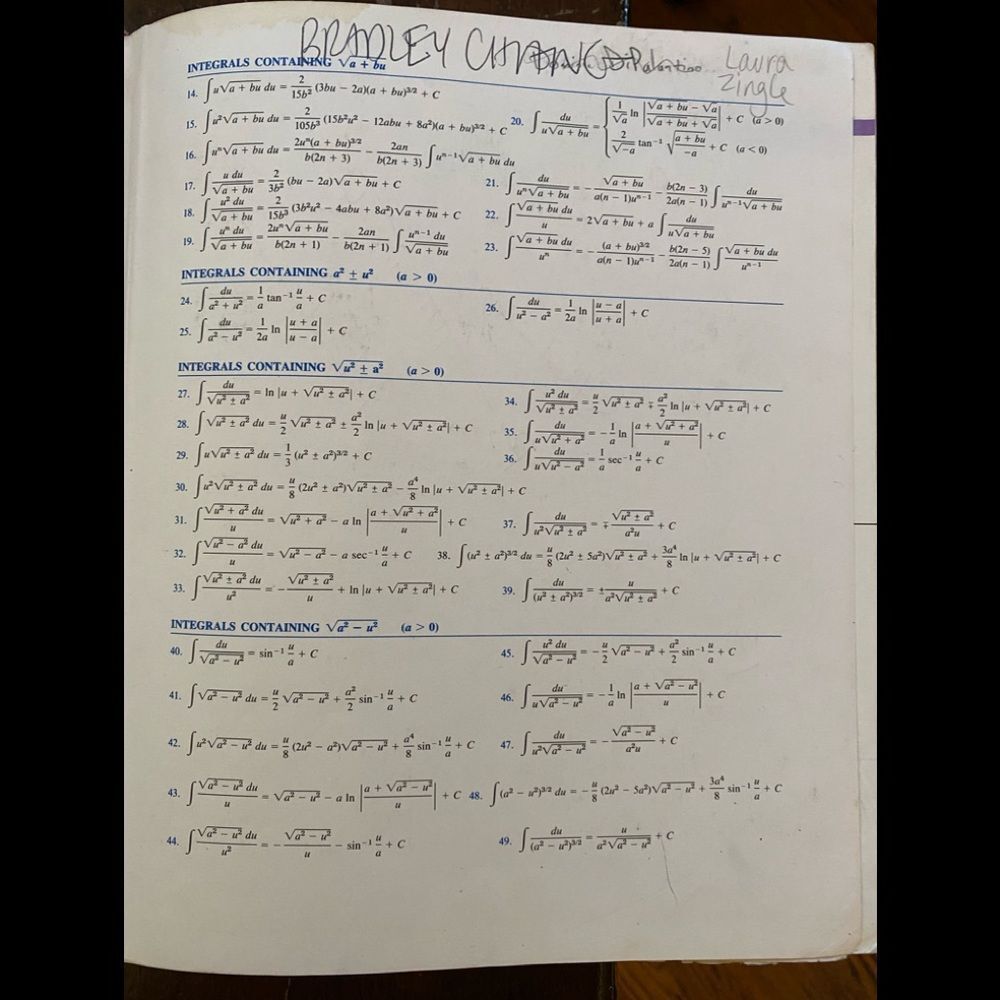 BRADLEY CHANG
Laura
Zingle
INTEGRALS CONTAINING √(a + bu)
14. ∫u√(a + bu) du = 2/(15b²) (3bu − 2a)(a + bu)^(3/2) + C
15. ∫u²√(a + bu) du = 2/(105b³) (15b²u² − 12abu + 8a²)(a + bu)^(3/2) + C
16. ∫uⁿ√(a + bu) du = 2uⁿ(a + bu)^(3/2)/(b(2n + 3)) − 2an/(b(2n + 3)) ∫uⁿ⁻¹√(a + bu) du
17. ∫u du/√(a + bu) = 2/(3b²) (bu − 2a)√(a + bu) + C
18. ∫u² du/√(a + bu) = 2/(15b³) (3b²u² − 4abu + 8a²)√(a + bu) + C
19. ∫uⁿ du/√(a + bu) = 2uⁿ√(a + bu)/(b(2n + 1)) − 2an/(b(2n + 1)) ∫uⁿ⁻¹ du/√(a + bu)
20. ∫du/(u√(a + bu)) = { 1/√a ln |(√(a + bu) − √a)/(√(a + bu) + √a)| + C (a > 0)
2/√(−a) tan⁻¹ √((a + bu)/(−a)) + C (a < 0)
21. ∫du/(uⁿ√(a + bu)) = − √(a + bu)/(a(n − 1)uⁿ⁻¹) − b(2n − 3)/(2a(n − 1)) ∫du/(uⁿ⁻¹√(a + bu))
22. ∫√(a + bu) du/u = 2√(a + bu) + a ∫du/(u√(a + bu))
23. ∫√(a + bu) du/uⁿ = − (a + bu)^(3/2)/(a(n − 1)uⁿ⁻¹) − b(2n − 5)/(2a(n − 1)) ∫√(a + bu) du/uⁿ⁻¹
INTEGRALS CONTAINING a² ± u² (a > 0)
24. ∫du/(a² + u²) = 1/a tan⁻¹ u/a + C
25. ∫du/(a² − u²) = 1/(2a) ln |(u + a)/(u − a)| + C
26. ∫du/(u² − a²) = 1/(2a) ln |(u − a)/(u + a)| + C
INTEGRALS CONTAINING √(u² ± a²) (a > 0)
27. ∫du/√(u² ± a²) = ln |u + √(u² ± a²)| + C
28. ∫√(u² ± a²) du = u/2 √(u² ± a²) ± a²/2 ln |u + √(u² ± a²)| + C
29. ∫u√(u² ± a²) du = 1/3 (u² ± a²)^(3/2) + C
30. ∫u²√(u² ± a²) du = u/8 (2u² ± a²)√(u² ± a²) − a⁴/8 ln |u + √(u² ± a²)| + C
31. ∫√(u² + a²) du/u = √(u² + a²) − a ln |(a + √(u² + a²))/u| + C
32. ∫√(u² − a²) du/u = √(u² − a²) − a sec⁻¹ u/a + C
33. ∫√(u² ± a²) du/u² = − √(u² ± a²)/u + ln |u + √(u² ± a²)| + C
34. ∫u² du/√(u² ± a²) = u/2 √(u² ± a²) ∓ a²/2 ln |u + √(u² ± a²)| + C
35. ∫du/(u√(u² + a²)) = − 1/a ln |(a + √(u² + a²))/u| + C
36. ∫du/(u√(u² − a²)) = 1/a sec⁻¹ u/a + C
37. ∫du/(u²√(u² ± a²)) = ∓ √(u² ± a²)/(a²u) + C
38. ∫(u² ± a²)^(3/2) du = u/8 (2u² ± 5a²)√(u² ± a²) + 3a⁴/8 ln |u + √(u² ± a²)| + C
39. ∫du/(u² ± a²)^(3/2) = ± u/(a²√(u² ± a²)) + C
INTEGRALS CONTAINING √(a² − u²) (a > 0)
40. ∫du/√(a² − u²) = sin⁻¹ u/a + C
41. ∫√(a² − u²) du = u/2 √(a² − u²) + a²/2 sin⁻¹ u/a + C
42. ∫u²√(a² − u²) du = u/8 (2u² − a²)√(a² − u²) + a⁴/8 sin⁻¹ u/a + C
43. ∫√(a² − u²) du/u = √(a² − u²) − a ln |(a + √(a² − u²))/u| + C
44. ∫√(a² − u²) du/u² = − √(a² − u²)/u − sin⁻¹ u/a + C
45. ∫u² du/√(a² − u²) = − u/2 √(a² − u²) + a²/2 sin⁻¹ u/a + C
46. ∫du/(u√(a² − u²)) = − 1/a ln |(a + √(a² − u²))/u| + C
47. ∫du/(u²√(a² − u²)) = − √(a² − u²)/(a²u) + C
48. ∫(a² − u²)^(3/2) du = − u/8 (2u² − 5a²)√(a² − u²) + 3a⁴/8 sin⁻¹ u/a + C
49. ∫du/(a² − u²)^(3/2) = u/(a²√(a² − u²)) + C